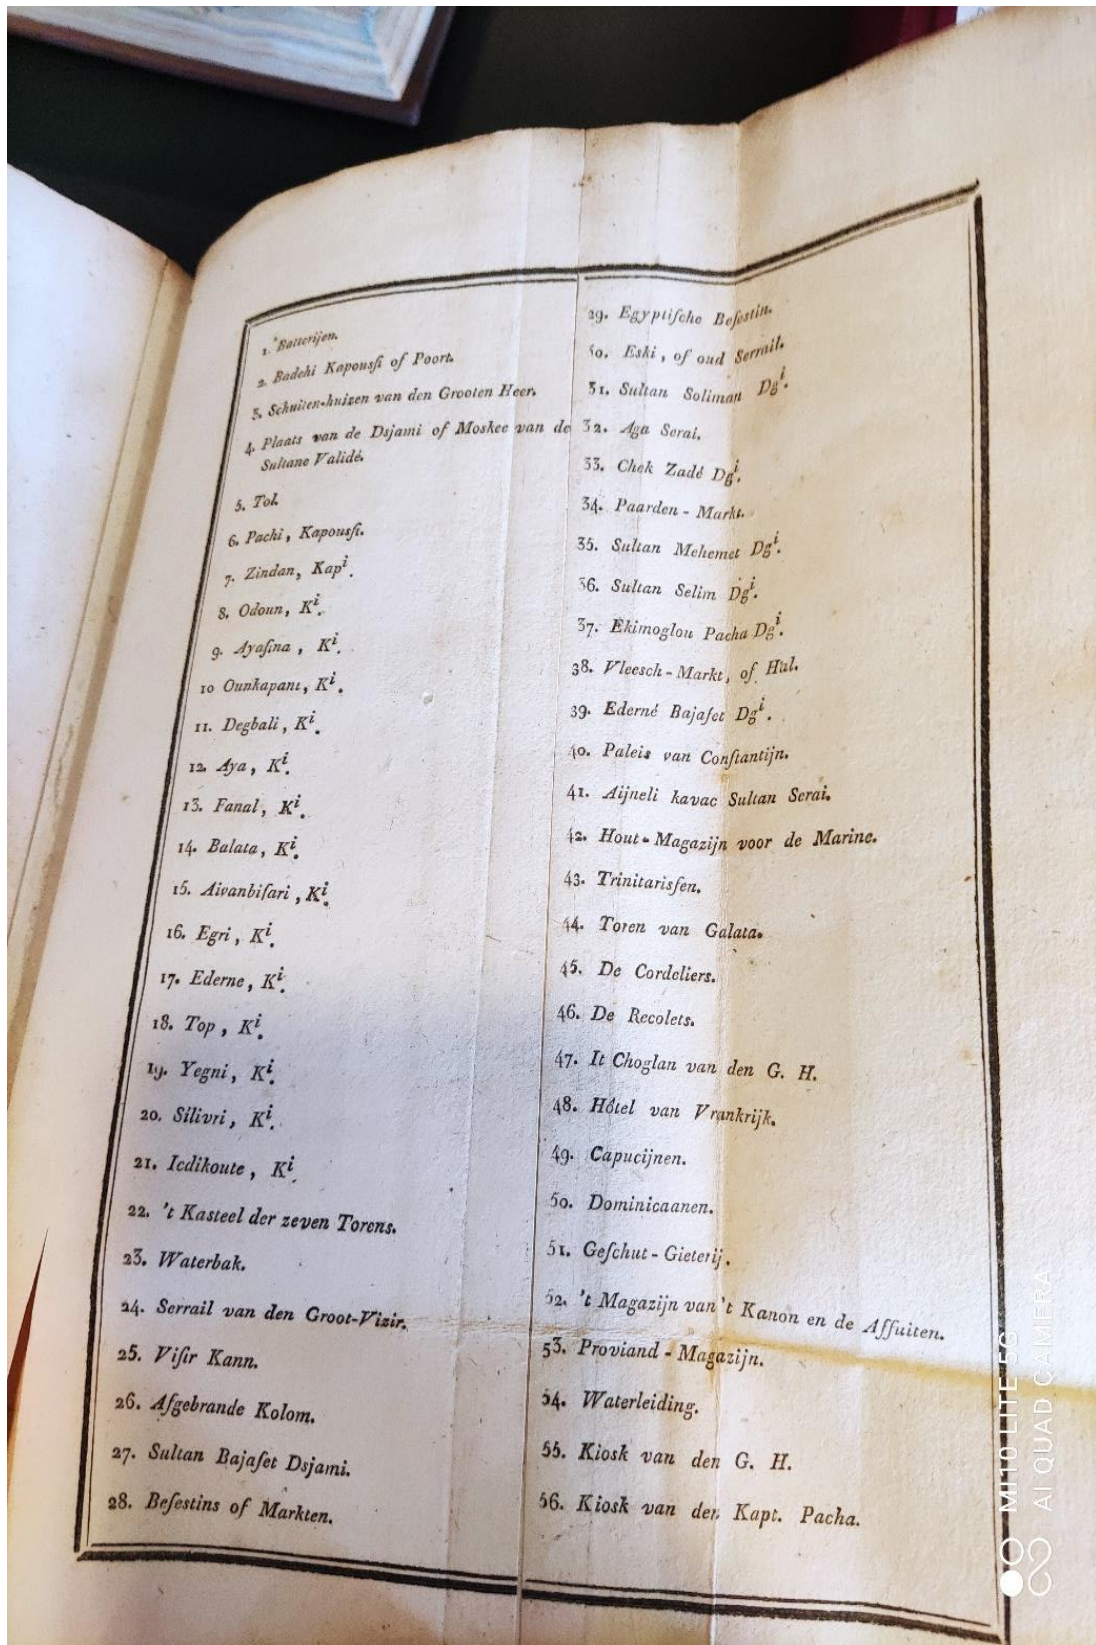 1. Batterijen.
2. Badchi Kapousſi of Poort.
3. Schuiten-huizen van den Grooten Heer.
4. Plaats van de Dsjami of Moskee van de
Sultane Validé.
5. Tol.
6. Pachi, Kapousſi.
7. Zindan, Kapi.
8. Odoun, Ki.
9. Ayaſina, Ki.
10 Ounkapanı, Ki.
11. Degbali, Ki.
12. Aya, Ki.
13. Fanal, Ki.
14. Balata, Ki.
15. Aivanbiſari, Ki.
16. Egri, Ki.
17. Ederne, Ki.
18. Top, Ki.
19. Yegni, Ki.
20. Silivri, Ki.
21. Iedikoute, Ki.
22. 't Kasteel der zeven Torens.
23. Waterbak.
24. Serrail van den Groot-Vizir.
25. Viſir Kann.
26. Afgebrande Kolom.
27. Sultan Bajaſet Dsjami.
28. Beſestins of Markten.
29. Egyptiſche Beſestin.
30. Eski, of oud Serrail.
31. Sultan Soliman Dgi.
32. Aga Serai.
33. Chek Zadé Dgi.
34. Paarden-Markt.
35. Sultan Mehemet Dgi.
36. Sultan Selim Dgi.
37. Ekimoglou Pacha Dgi.
38. Vleesch-Markt, of Hal.
39. Ederné Bajaſet Dgi.
40. Paleis van Conſtantijn.
41. Aijneli kavac Sultan Serai.
42. Hout-Magazijn voor de Marine.
43. Trinitarisſen.
44. Toren van Galata.
45. De Cordeliers.
46. De Recolets.
47. It Choglan van den G. H.
48. Hôtel van Vrankrijk.
49. Capucijnen.
50. Dominicaanen.
51. Geſchut-Gieterij.
52. 't Magazijn van 't Kanon en de Affuiten.
53. Proviand-Magazijn.
54. Waterleiding.
55. Kiosk van den G. H.
56. Kiosk van den Kapt. Pacha.
MI 10 LITE 5G
AI QUAD CAMERA